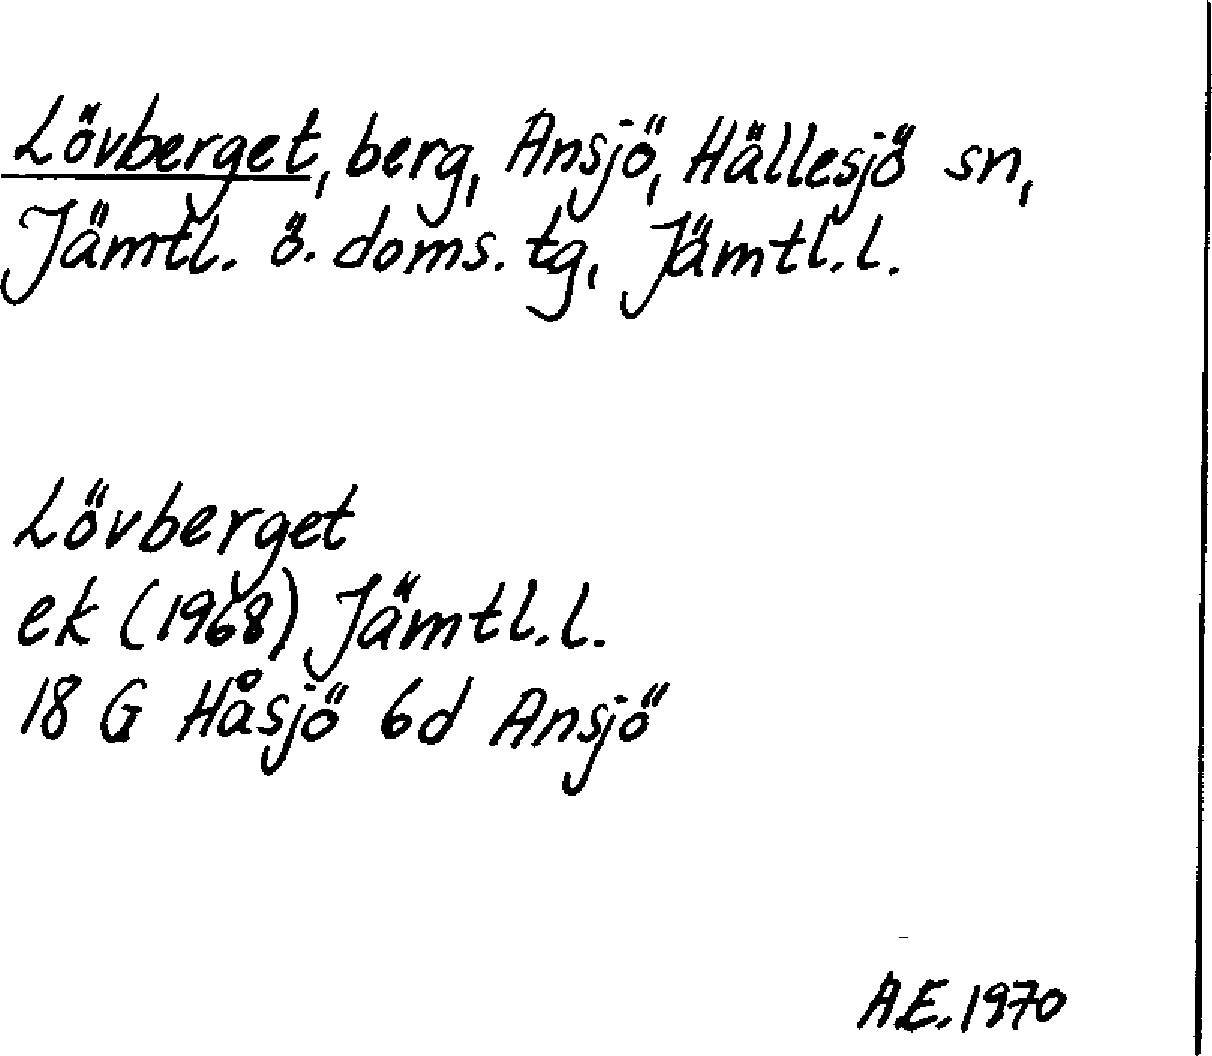 Lövberget, berg, Ansjö, Hällesjö sn,
Jämtl. ö. doms. tg, Jämtl. l.
Lövberget
ek (1968) Jämtl. l.
18 G Håsjö 6d Ansjö
A.E. 1970